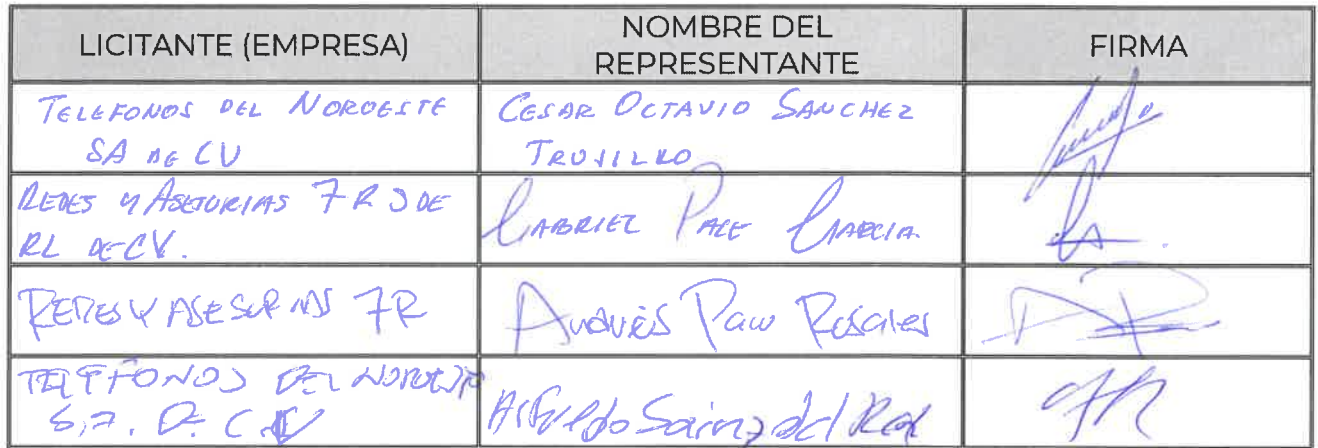 LICITANTE (EMPRESA)
NOMBRE DEL
REPRESENTANTE
FIRMA
TELEFONOS DEL NOROESTE
SA DE CV
CESAR OCTAVIO SANCHEZ
TRUJILLO
REDES Y ASESORIAS 7R S DE
RL DE CV.
GABRIEL GARCIA
REDES Y ASESORIAS 7R
Andrés Rosales
TELEFONOS DEL NOROESTE
S.A. DE C.V
Alfredo Sainz del Real